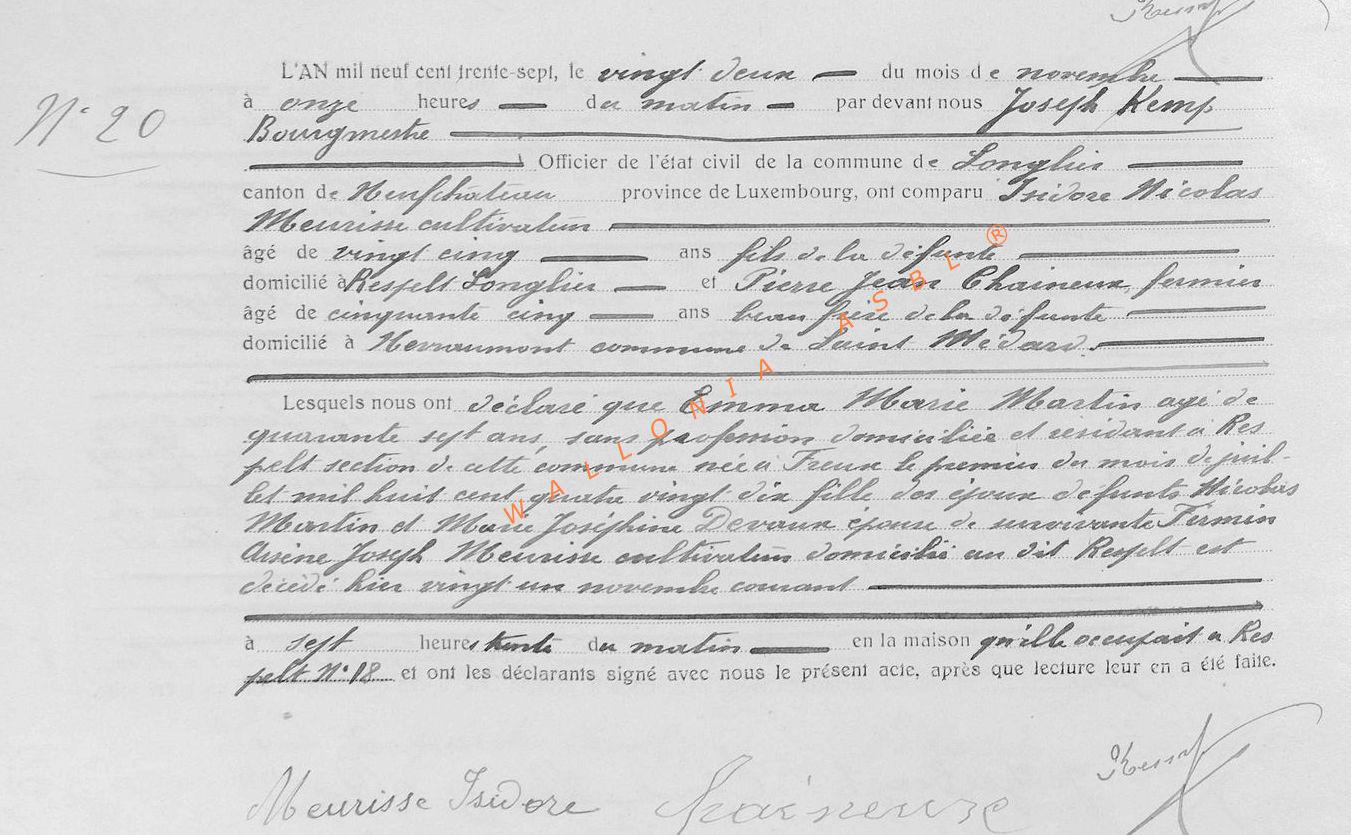 Kemp
L'AN mil neuf cent trente-sept, le vingt deux du mois de novembre
N° 20
à onze heures du matin par devant nous Joseph Kemp
Bourgmestre
Officier de l'état civil de la commune de Longlier
canton de Neufchâteau province de Luxembourg, ont comparu Isidore Nicolas
Meurisse cultivateur
âgé de vingt cinq ans fils de la défunte
domicilié à Respelt Longlier et Pierre Jean Chaineux fermier
âgé de cinquante cinq ans beau frère de la défunte
domicilié à commune de Saint Médard.
Lesquels nous ont déclaré que Emma Marie Martin agé de
quarante sept ans, sans profession domiciliée et residant à Res
pelt section de cette commune née à Freux le premier du mois de juil-
let mil huit cent quatre vingt dix fille des époux défunts Nicolas
Martin et Marie Joséphine Devaux épouse de survivante Firmin
Arsène Joseph Meurisse cultivateur domicilié au dit Respelt est
décédé hier vingt un novembre courant
à sept heures trente du matin en la maison qu'elle occupait à Res
pelt N° 18 et ont les déclarants signé avec nous le présent acte, après que lecture leur en a été faite.
Meurisse Isidore Chaineux Kemp
WALLONIA ASBL ®